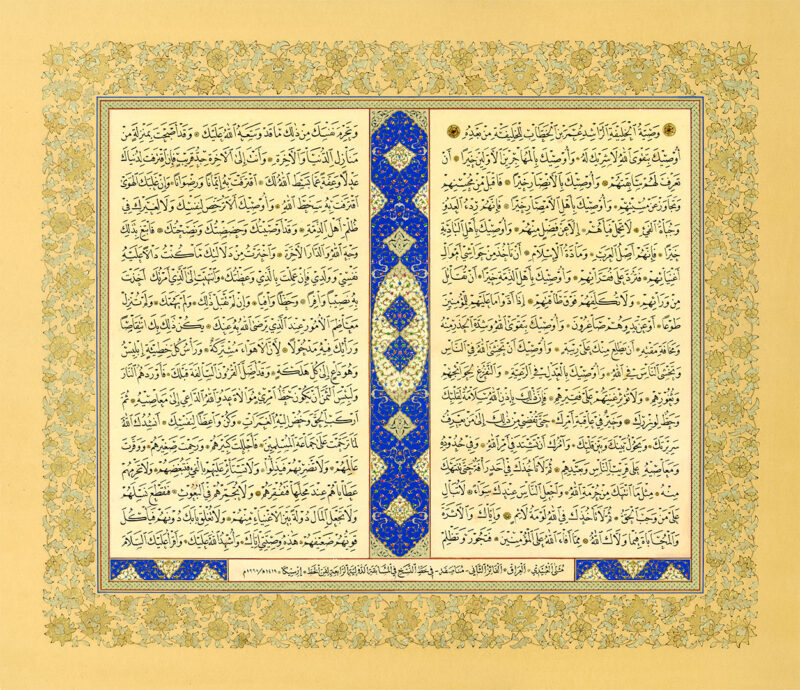 وصية الخليفة الراشد عمر بن الخطاب للخليفة من بعده
أوصيك بتقوى الله لا شريك له وأوصيك بالمهاجرين الأولين خيرا أن
تعرف لهم سابقتهم وأوصيك بالأنصار خيرا فاقبل من محسنهم
وتجاوز عن مسيئهم وأوصيك بأهل الأمصار خيرا فإنهم ردء العدو
وجباة الفيء لا تحمل فيأهم إلا عن فضل منهم وأوصيك بأهل البادية
خيرا فإنهم أصل العرب ومادة الإسلام أن تأخذ من حواشي أموال
أغنيائهم فترد على فقرائهم وأوصيك بأهل الذمة خيرا أن تقاتل
من ورائهم ولا تكلفهم فوق طاقتهم إذا أدوا ما عليهم للمؤمنين
طوعا أو عن يد وهم صاغرون وأوصيك بتقوى الله وشدة الحذر منه
ومخافة مقته أن يطلع منك على ريبة وأوصيك أن تخشى الله في الناس
ولا تخشى الناس في الله وأوصيك بالعدل في الرعية والتفرغ لحوائجهم
وثغورهم ولا تؤثر غنيهم على فقيرهم فإن ذلك بإذن الله سلامة لقلبك
وحط لوزرك وخير في عاقبة أمرك حتى تفضي من ذلك إلى من يعرف
سريرتك ويحول بينك وبين قلبك وآمرك أن تشتد في أمر الله وفي حدوده
ومعاصيه على قريب الناس وبعيدهم ثم لا تأخذك في أحد رأفة حتى تنتهك
منه مثل ما انتهك من حرمة الله واجعل الناس عندك سواء لا تبال
على من وجب الحق ثم لا تأخذك في الله لومة لائم وإياك والأثرة
والمحاباة فيما ولاك الله مما أفاء الله على المؤمنين فتجور وتظلم
وتحرم نفسك من ذلك ما قد وسعه الله عليك وقد أصبحت بمنزلة من
منازل الدنيا والآخرة وأنت إلى الآخرة جد قريب فإن اقترفت لدنياك
عدلا وعفة عما بسط الله لك اقترفت به إيمانا ورضوانا وإن غلبك الهوى
اقترفت به سخط الله وأوصيك ألا ترخص لنفسك ولا لغيرك في
ظلم أهل الذمة وقد أوصيتك وحضضتك ونصحتك فابتغ بذلك
وجه الله والدار الآخرة واخترت من دلالتك ما كنت دالا عليه
نفسي وولدي فإن عملت بالذي وعظتك وانتهيت إلى الذي أمرتك أخذت
به نصيبا وافرا وحظا وافيا وإن لم تقبل ذلك ولم يهمك ولم تنزل
معاظم الأمور عند الذي يرضى الله به عنك يكن ذلك بك انتقاصا
ورأيك فيه مدخولا لأن الأهواء مشتركة ورأس كل خطيئة إبليس
وهو داع إلى كل هلكة وقد أضل القرون السالفة قبلك فأوردهم النار
ولبئس الثمن أن يكون حظ امرئ موالاة عدو الله الداعي إلى معاصيه ثم
اركب الحق وخض إليه الغمرات وكن واعظا لنفسك أنشدك الله
لما ترحمت على جماعة المسلمين فأجللت كبيرهم ورحمت صغيرهم ووقرت
عالمهم ولا تضربهم فيذلوا ولا تستأثر عليهم بالفيء فتغضبهم ولا تحرمهم
عطاياهم عند محلها فتفقرهم ولا تجمرهم في البعوث فتقطع نسلهم
ولا تجعل المال دولة بين الأغنياء منهم ولا تغلق بابك دونهم فيأكل
قويهم ضعيفهم هذه وصيتي إياك وأشهد الله عليك وأقرأ عليك السلام
مثنى العبيدي العراق الفائز الثاني في خط النسخ في المسابقة الدولية الرابعة لفن الخط إرسيكا